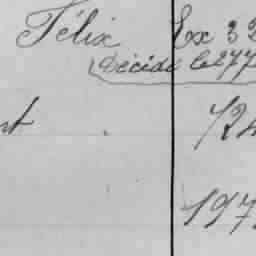 Félix Ex 32
Décédé le 277
nt 724
197